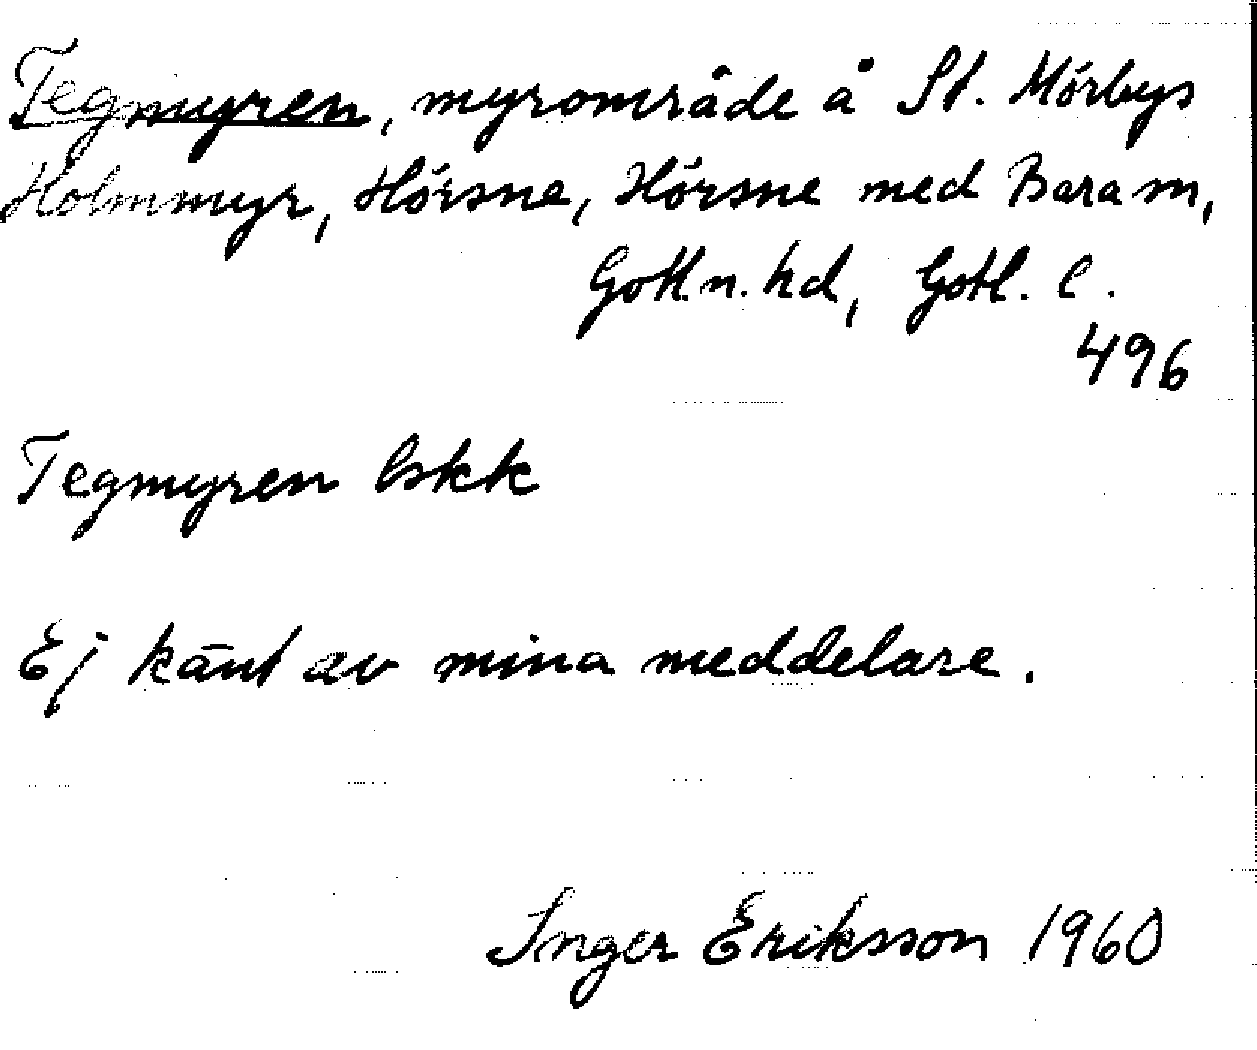 Tegmyren, myrområde å St. Mörbys
Holmmyr, Hörsne, Hörsne med Bara sn,
Gotl. n. hd, Gotl. l.
496
Tegmyren Eskk
Ej känt av mina meddelare.
Inger Eriksson 1960